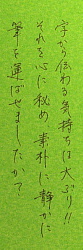 字から伝わる気持ちは大ぶり!!
それを心に秘め素朴に静かに
筆を運ばせましたか?